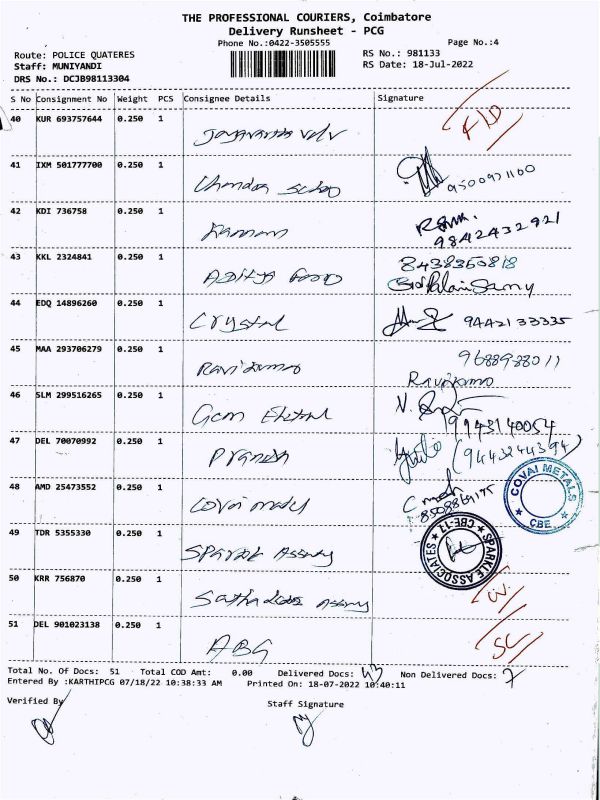 THE PROFESSIONAL COURIERS, Coimbatore
Delivery Runsheet - PCG
Phone No.:0422-3505555
Page No.:4
Route: POLICE QUATERES
RS No.: 981133
Staff: MUNIYANDI
RS Date: 18-Jul-2022
DRS No.: DCJB98113304
S No Consignment No Weight PCS Consignee Details Signature
40 KUR 693757644 0.250 1
41 IXM 501777700 0.250 1
9500971100
42 KDI 736758 0.250 1 Raman
9842432921
43 KKL 2324841 0.250 1 Aditya Food 8438350818
44 EDQ 14896260 0.250 1 Crystal 9442133335
45 MAA 293706279 0.250 1 Ravikumar 9688988011
Ravikumar
46 SLM 299516265 0.250 1
9943140054
47 DEL 70070992 0.250 1 Pranesh (9443244394)
48 AMD 25473552 0.250 1 Covai Metal
COVAI METALS
CBE
49 TDR 5355330 0.250 1 Sparkle Assocy
SPARKLE ASSOCIATES
CBE-11
50 KRR 756870 0.250 1
51 DEL 901023138 0.250 1 ABG SC
Total No. Of Docs: 51 Total COD Amt: 0.00 Delivered Docs: 43 Non Delivered Docs: 7
Entered By :KARTHIPCG 07/18/22 10:38:33 AM Printed On: 18-07-2022 10:40:11
Verified By
Staff Signature